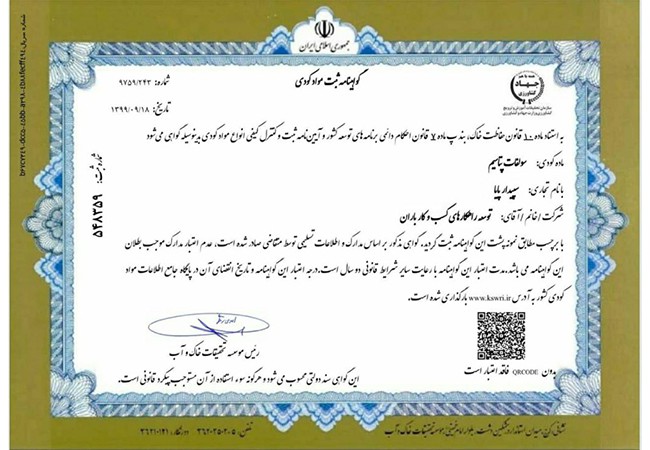 جمهوری اسلامی ایران
گواهینامه ثبت مواد کودی
شماره: ۹۷۵۹/۲۴۳
تاریخ: ۱۳۹۹/۰۹/۱۸
جهاد
کشاورزی
سازمان تحقیقات، آموزش و ترویج
به استناد ماده ۱۰ قانون حفاظت خاک، بند پ ماده ۷ قانون احکام دائمی برنامه های توسعه کشور و آیین نامه ثبت و کنترل کیفی انواع مواد کودی بدینوسیله گواهی می شود
ماده کودی: سولفات پتاسیم
با نام تجاری: سپیدار پاپا
شرکت / خانم / آقای: توسعه راهکارهای کسب و کار باران
با برچسب مطابق نمونه پشت این گواهینامه ثبت گردید، گواهی مذکور بر اساس مدارک و اطلاعات تسلیمی توسط متقاضی صادر شده است، عدم اعتبار مدارک موجب بطلان
این گواهینامه می باشد. مدت اعتبار این گواهینامه با رعایت سایر شرایط قانونی دو سال است، درجه اعتبار این گواهینامه و تاریخ انقضای آن در پایگاه جامع اطلاعات مواد
کودی کشور به آدرس www.kswri.ir بارگذاری شده است.
شماره ثبت: ۵۴۸۳۵۹
رئیس موسسه تحقیقات خاک و آب
بدون QRCODE فاقد اعتبار است
این گواهی سند دولتی محسوب می شود و هرگونه سوء استفاده از آن مستوجب پیگرد قانونی است.
نشانی: کرج، میدان استاندارد، مشکین دشت، بلوار امام خمینی، موسسه تحقیقات خاک و آب
تلفن: ۵-۳۶۲۰۲۵۰۲ دورنگار: ۳۶۲۱۰۱۲۱
شماره سریال: